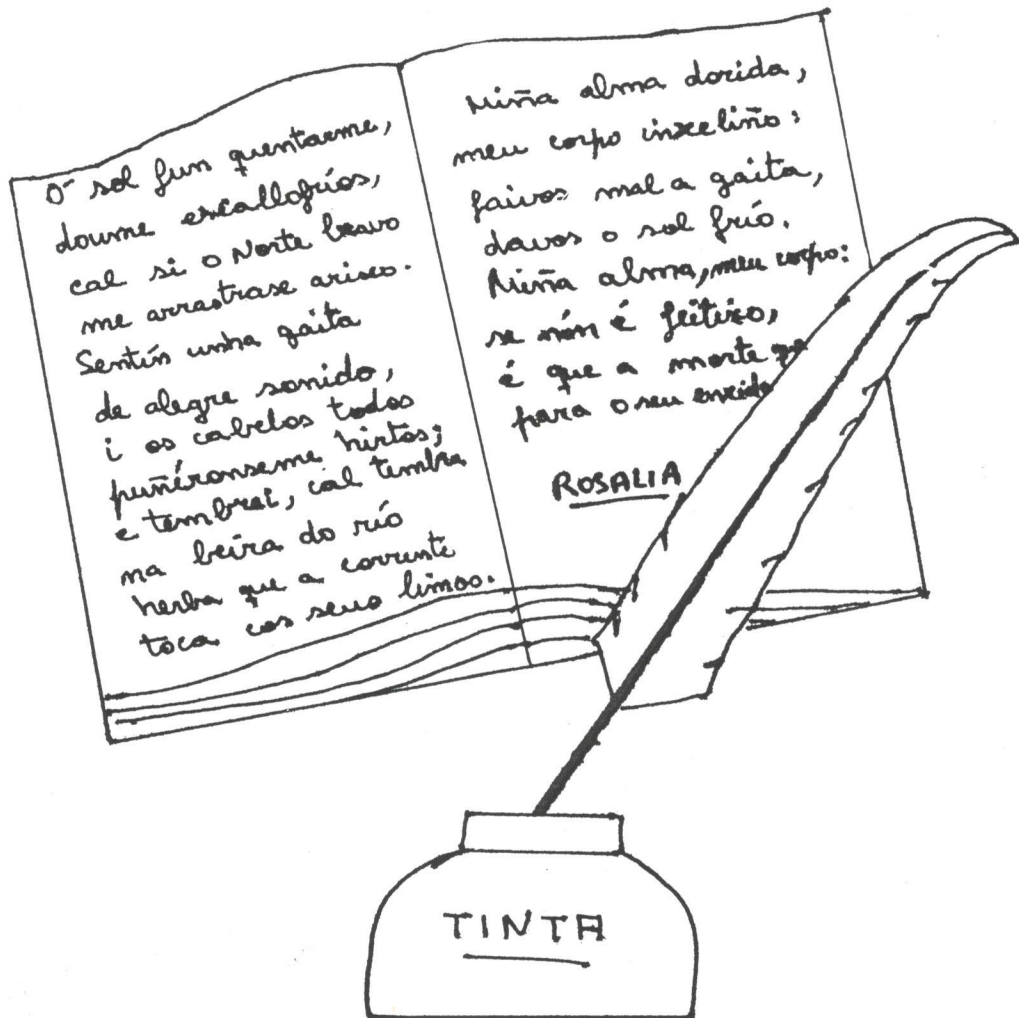 Ó sol fun quentarme,
doume escallofríos,
cal si o Norte bravo
me arrastrase arisco.
Sentín unha gaita
de alegre sonido,
i os cabelos todos
puñéronseme hirtos;
e tembrei, cal tembra
na beira do río
herba que a corrente
toca cos seus limos.
Miña alma dorida,
meu corpo inxeliño:
faivos mal a gaita,
davos o sol frío.
Miña alma, meu corpo:
se nón é feitizo,
é que a morte
para o seu enxido
ROSALIA
TINTA